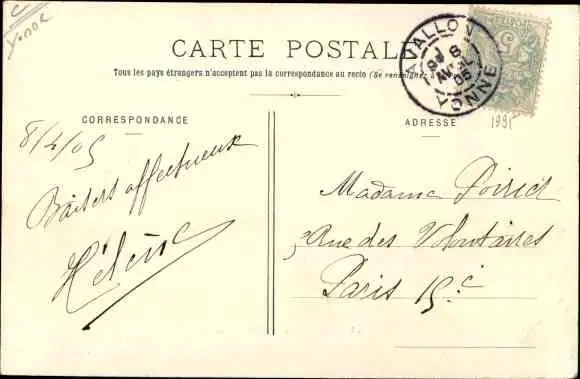 Yonne
CARTE POSTALE
Tous les pays étrangers n'acceptent pas la correspondance au recto (Se renseigner à
AVALLON
8
AVRIL
05
YONNE
5
CORRESPONDANCE
ADRESSE
8/4/05
Baisers affectueux
Hélène
Madame Poiriet
Rue des Volontaires
Paris 15e